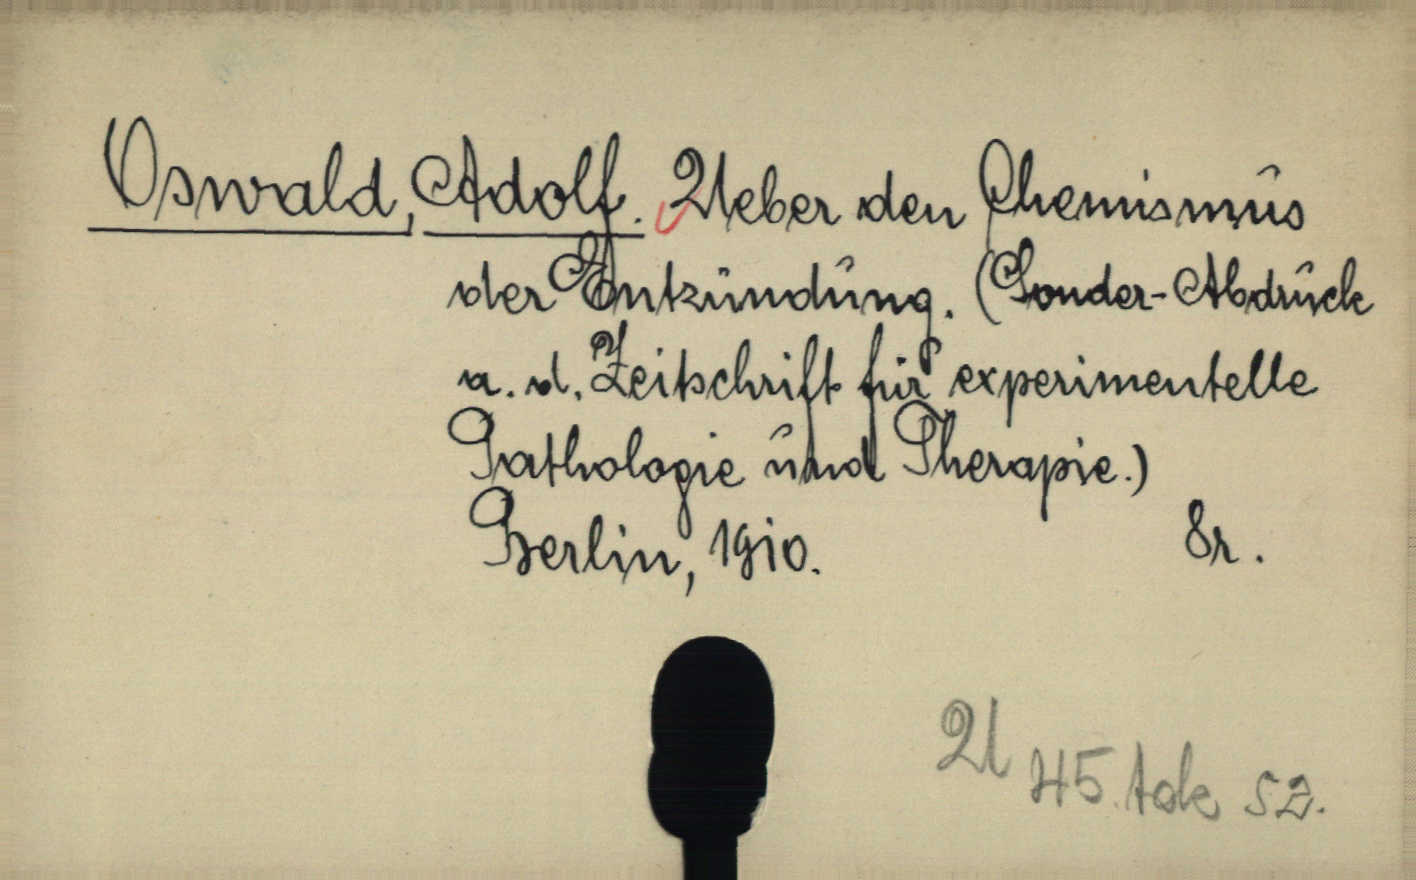 Oswald, Adolf. Ueber den Chemismus
der Entzündung. (Sonder-Abdruck
a. d. Zeitschrift für experimentelle
Pathologie und Therapie.)
Berlin, 1910. 8r.
U 45. tok 52.